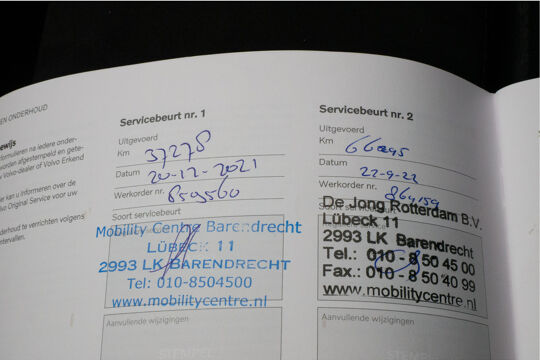 EN ONDERHOUD
ewijs
formulieren na iedere onder-
worden afgestempeld en gete-
Volvo-dealer of Volvo Erkend
er kan u informeren over de
Volvo Original Service voor uw
derhoud te verrichten volgens
ntervallen.
Servicebeurt nr. 1
Uitgevoerd
Km 37278
Datum 20-12-2021
Werkorder nr. 859560
Soort servicebeurt
Mobility Centre Barendrecht
LÜBECK 11
2993 LK BARENDRECHT
Tel: 010-8504500
www.mobilitycentre.nl
Aanvullende wijzigingen
Servicebeurt nr. 2
Uitgevoerd
Km 66295
Datum 22-9-22
Werkorder nr. 864159
Soort servicebeurt
De Jong Rotterdam B.V.
Lübeck 11
2993 LK Barendrecht
Tel.: 010 - 8 50 45 00
Fax.: 010 - 8 50 40 99
www.mobilitycentre.nl
Aanvullende wijzigingen